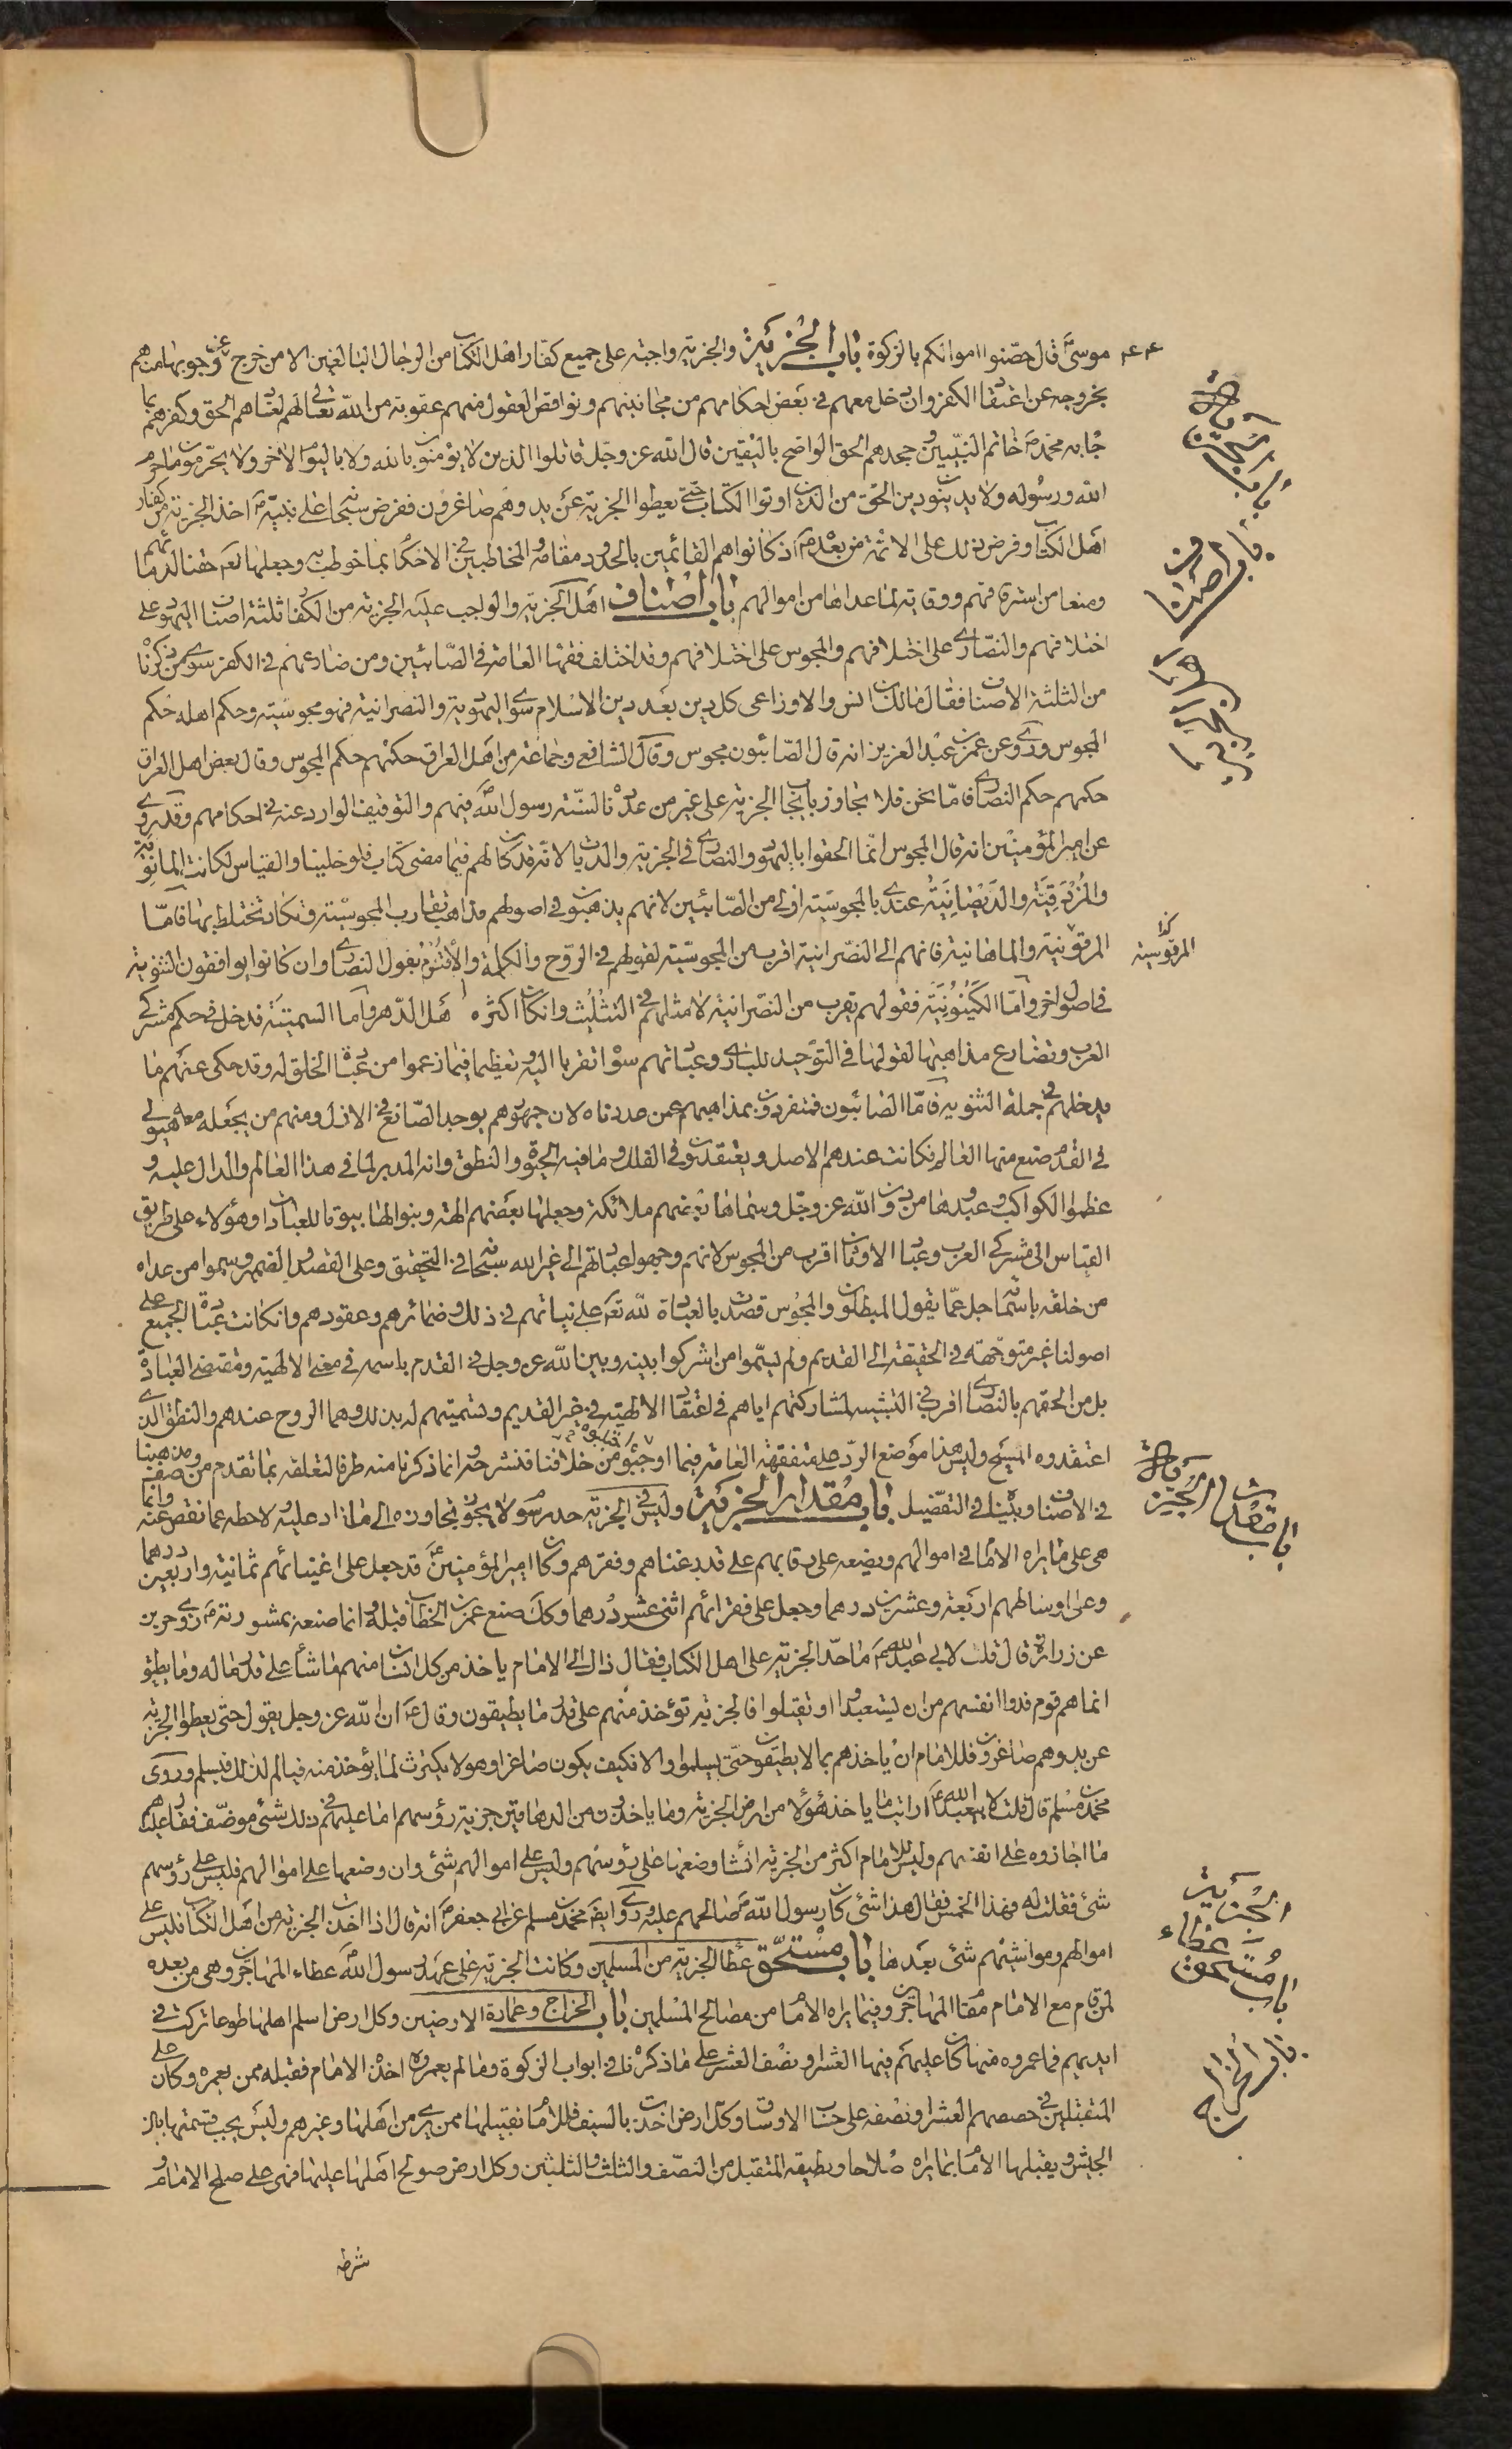 موسىٰ ع قال حصّنوا اموالكم بالزكوة باب الجزية والجزية واجبة على جميع كفار اهل الكتاب من الرجال البالغين الا من خرج عن وجوبها منهم
بخروجه عن اعتقاد الكفر وان دخل معهم فى بعض احكامهم من مجانينهم ونواقص العقول منهم عقوبة من الله تعالى لهم لعنادهم الحق وكفرهم بما
جاء به محمد ص خاتم النبيين وجحدهم الحق الواضح باليقين قال الله عز وجل قاتلوا الذين لا يؤمنون بالله ولا باليوم الاخر ولا يحرمون ما حرم
الله ورسوله ولا يدينون دين الحق من الذين اوتوا الكتاب حتى يعطوا الجزية عن يد وهم صاغرون ففرض سبحانه على نبيه ص اخذ الجزية من كفار
اهل الكتاب وفرض ذلك على الائمة من بعده ع اذ كانوا هم القائمين بالحدود مقامه والمخاطبين فى الاحكام بما خوطب به وجعلها تعم حقنا لدمائهم
ومنعا من استرقاقهم ووقاية لما عداها من اموالهم باب اصناف اهل الجزية والواجب عليه الجزية من الكفار ثلثة اصناف اليهود على
اختلافهم والنصارى على اختلافهم والمجوس على اختلافهم وقد اختلف فقهاء العامة فى الصابئين ومن ضارعهم فى الكفر سوى من ذكرنا
من الثلثة الاصناف فقال مالك بن انس والاوزاعى كل دين بعد دين الاسلام سوى اليهودية والنصرانية فهو مجوسية وحكم اهله حكم
المجوس وروى عن عمر بن عبد العزيز انه قال الصابئون مجوس وقال الشافعى وجماعة من اهل العراق حكمهم حكم المجوس وقال بعض اهل العراق
حكمهم حكم النصارى فاما نحن فلا نتجاوز بايجاب الجزية على غير من عددنا لسنة رسول الله فيهم والتوقيف الوارد عنه فى احكامهم وقد روى
عن امير المؤمنين انه قال المجوس انما الحقوا باليهود والنصارى فى الجزية والديات لانه قد كان لهم فيما مضى كتاب فلو خلينا والقياس لكانت المانوية
والمزدقية والديصانية عندى بالمجوسية اولى من الصابئين لانهم يذهبون فى اصولهم مذاهب تقارب المجوسية وتكاد تختلط بها فاما
المرقونية والماهانية فانهم الى النصرانية اقرب من المجوسية لقولهم فى الروح والكلمة والأقنوم بقول النصارى وان كانوا يوافقون الثنوية
فى اصول اخر واما الكينونية فقولهم يقرب من النصرانية لاصلهم فى التثليث وان كان اكثره اهل الدهر واما السمنية فتدخل فى حكم مشركى
العرب وتضارع مذاهبها لقولها فى التوحيد للبارى وعبادتهم سواه تقربا اليه وتعظيما فيما زعموا من عبادة الخلق له وقد حكى عنهم ما
يدخلهم فى جملة الثنوية فاما الصابئون فمنفردون بمذاهبهم عمن عددناه لان جمهورهم يوحد الصانع فى الازل ومنهم من يجعل معه هيولى
فى القدم صنع منها العالم فكانت عندهم الاصل ويعتقدون فى الفلك وما فيه الحيوة والنطق وانه المدبر لما فى هذا العالم والدال عليه و
عظموا الكواكب وعبدوها من دون الله عز وجل وسماها بعضهم ملائكة وجعلها بعضهم الهة وبنوا لها بيوتا للعبادات وهؤلاء على طريق
القياس الى مشركى العرب وعباد الاوثان اقرب من المجوس لانهم وجهوا عبادتهم الى غير الله سبحانه فى التحقيق وعلى القصد والضمير وسموا من عداه
من خلقه باسمائه جل عما يقول المبطلون والمجوس قصدت بالعبادة لله تعالى على نياتهم فى ذلك وضمائرهم وعقودهم وان كانت عبادة الجميع على
اصولنا غير متوجهة فى الحقيقة الى القديم ولم يسموا من اشركوا بينه وبين الله عز وجل فى القدم باسمه فى معنى الالهية ومقتضى العبادة
بل من الحقهم بالنصارى اقرب فى التشبيه لمشاركتهم اياهم فى اعتقاد الالهية فى غير القديم وتسميتهم له بذلك وهما الروح عندهم والنطق الذى
اعتقدوه المسيح وليس هذا موضع الرد على متفقهة العامة فيما اوجبوه من خلافنا فنشرحه وانما ذكرنا منه طرفا لتعلقه بما تقدم من صفة ومذهبنا
فى الاصناف وبيناه فى التفصيل باب مقدار الجزية وليس فى الجزية حد مرسوم لا يجوز تجاوزه الى ما زاد عليه ولا حطه عما نقص عنه وانما
هى على ما يراه الامام فى اموالهم ويضعه على رقابهم على قدر غناهم وفقرهم وكان امير المؤمنين ع قد جعل على اغنيائهم ثمانية واربعين درهما
وعلى اوساطهم اربعة وعشرين درهما وجعل على فقرائهم اثنى عشر درهما وكذلك صنع عمر بن الخطاب قبله وانما صنعه بمشورته ع روى حريز
عن زرارة قال قلت لابى عبد الله ع ما حد الجزية على اهل الكتاب فقال ذلك الى الامام ياخذ من كل انسان منهم ما شاء على قدر ماله وما يطيق
انما هم قوم فدوا انفسهم من ان يستعبدوا او يقتلوا فالجزية تؤخذ منهم على قدر ما يطيقون وقال ع ان الله عز وجل يقول حتى يعطوا الجزية
عن يد وهم صاغرون فللامام ان ياخذهم بما لا يطيقون حتى يسلموا والا فكيف يكون صاغرا وهو لا يكترث لما يؤخذ منه فيألم لذلك فيسلم وروى
محمد بن مسلم قال قلت لابى عبد الله ع ارايت ما ياخذ هؤلاء من ارض الجزية وما ياخذون من الدهاقين جزية رؤسهم اما عليهم فى ذلك شئ موظف فقال عليهم
ما اجازوه على انفسهم وليس للامام اكثر من الجزية ان شاء وضعها على رؤسهم وليس على اموالهم شئ وان وضعها على اموالهم فليس على رؤسهم
شئ فقلت له فهذا الخمس فقال هذا شئ كان رسول الله ص صالحهم عليه وروى ايضا محمد بن مسلم عن ابى جعفر ع انه قال اذا اخذت الجزية من اهل الكتاب فليس على
اموالهم ومواشيهم شئ بعدها باب مستحق عطاء الجزية من المسلمين وكانت الجزية على عهد رسول الله ص عطاء المهاجرين وهى من بعده
لمن قام مع الامام مقام المهاجرين وفيما يراه الامام من مصالح المسلمين باب الخراج وعمارة الارضين وكل ارض اسلم اهلها طوعا تركت فى
ايديهم فما عمروه منها كان عليهم فيها العشر او نصف العشر على ما ذكرناه فى ابواب الزكوة وما لم يعمروه اخذه الامام فقبله ممن يعمره وكان على
المتقبلين فى حصصهم العشر او نصفه على حساب الاوساق وكل ارض اخذت بالسيف فللامام تقبيلها ممن يرى من اهلها وغيرهم وليس يجب قسمتها بين
الجيش ويقبلها الامام بما يراه صلاحا ويطيقه المتقبل من النصف والثلث والثلثين وكل ارض صولح اهلها عليها فهى على صلح الامام و
شرطه
٤٤
باب الجزية
باب اصناف
اهل الجزية
كذا
المرقوسية
باب مقدار الجزية
باب مستحق عطاء الجزية
باب الخراج